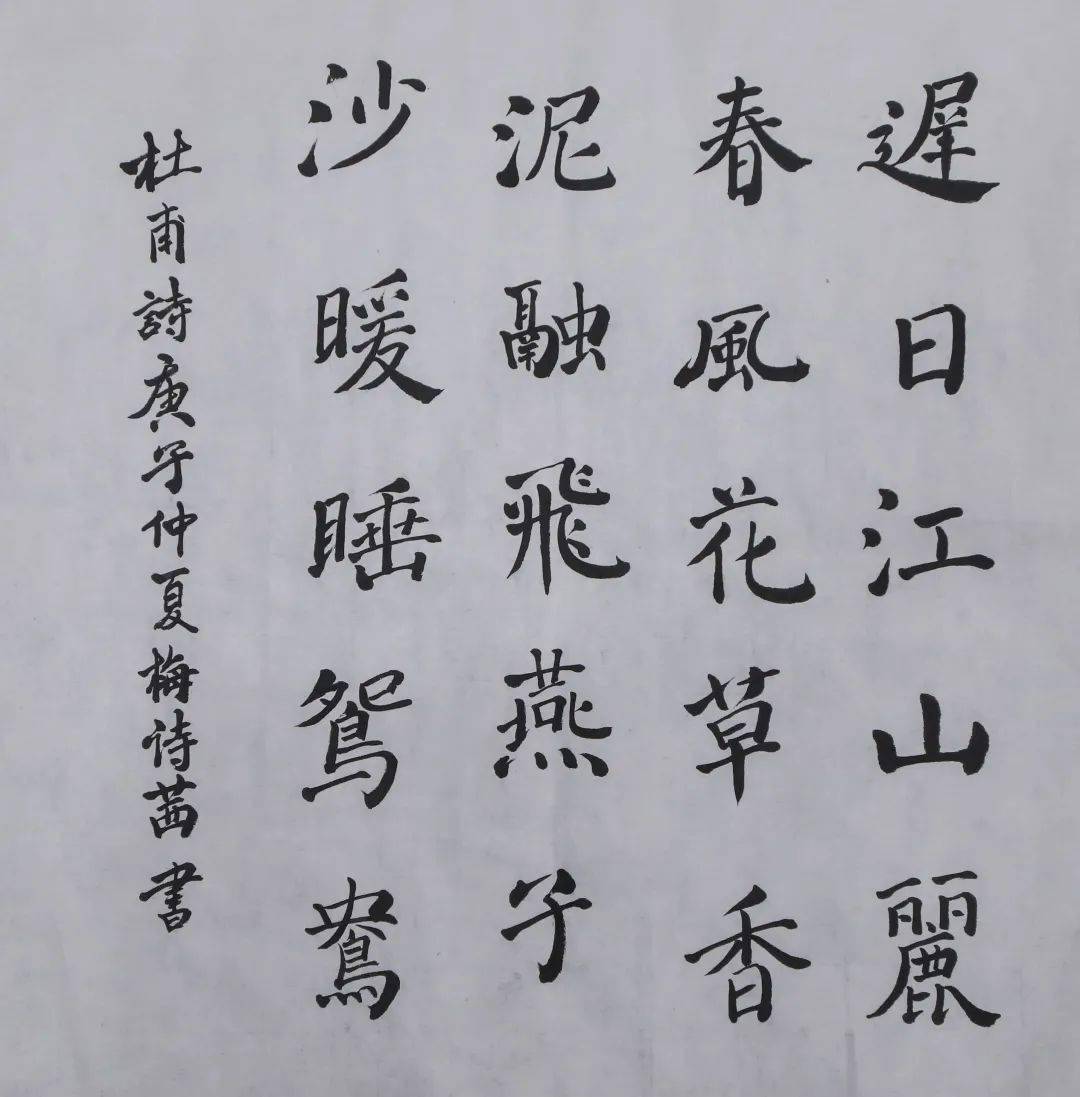 遲日江山麗
春風花草香
泥融飛燕子
沙暖睡鴛鴦
杜甫詩庚子仲夏梅诗茜書